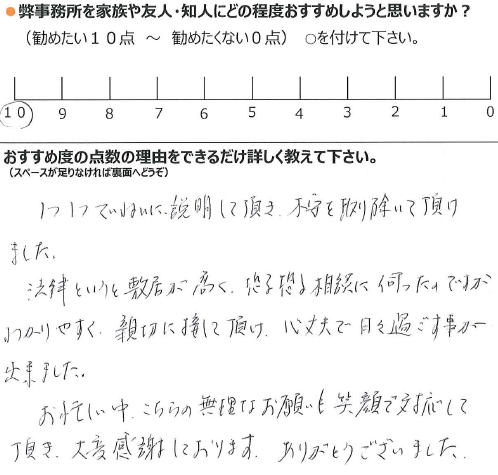 ●弊事務所を家族や友人・知人にどの程度おすすめしようと思いますか？
（勧めたい１０点　～　勧めたくない０点）　○を付けて下さい。
10 9 8 7 6 5 4 3 2 1 0
おすすめ度の点数の理由をできるだけ詳しく教えて下さい。
（スペースが足りなければ裏面へどうぞ）
1つ1つていねいに説明して頂き、不安を取り除いて頂け
ました。
法律というと敷居が高く、恐る恐る相談に伺ったのですが
わかりやすく、親切に接して頂け、心丈夫で日々過ごす事が
出来ました。
お忙しい中、こちらの無理なお願いも笑顔で対応して
頂き、大変感謝しております。ありがとうございました。